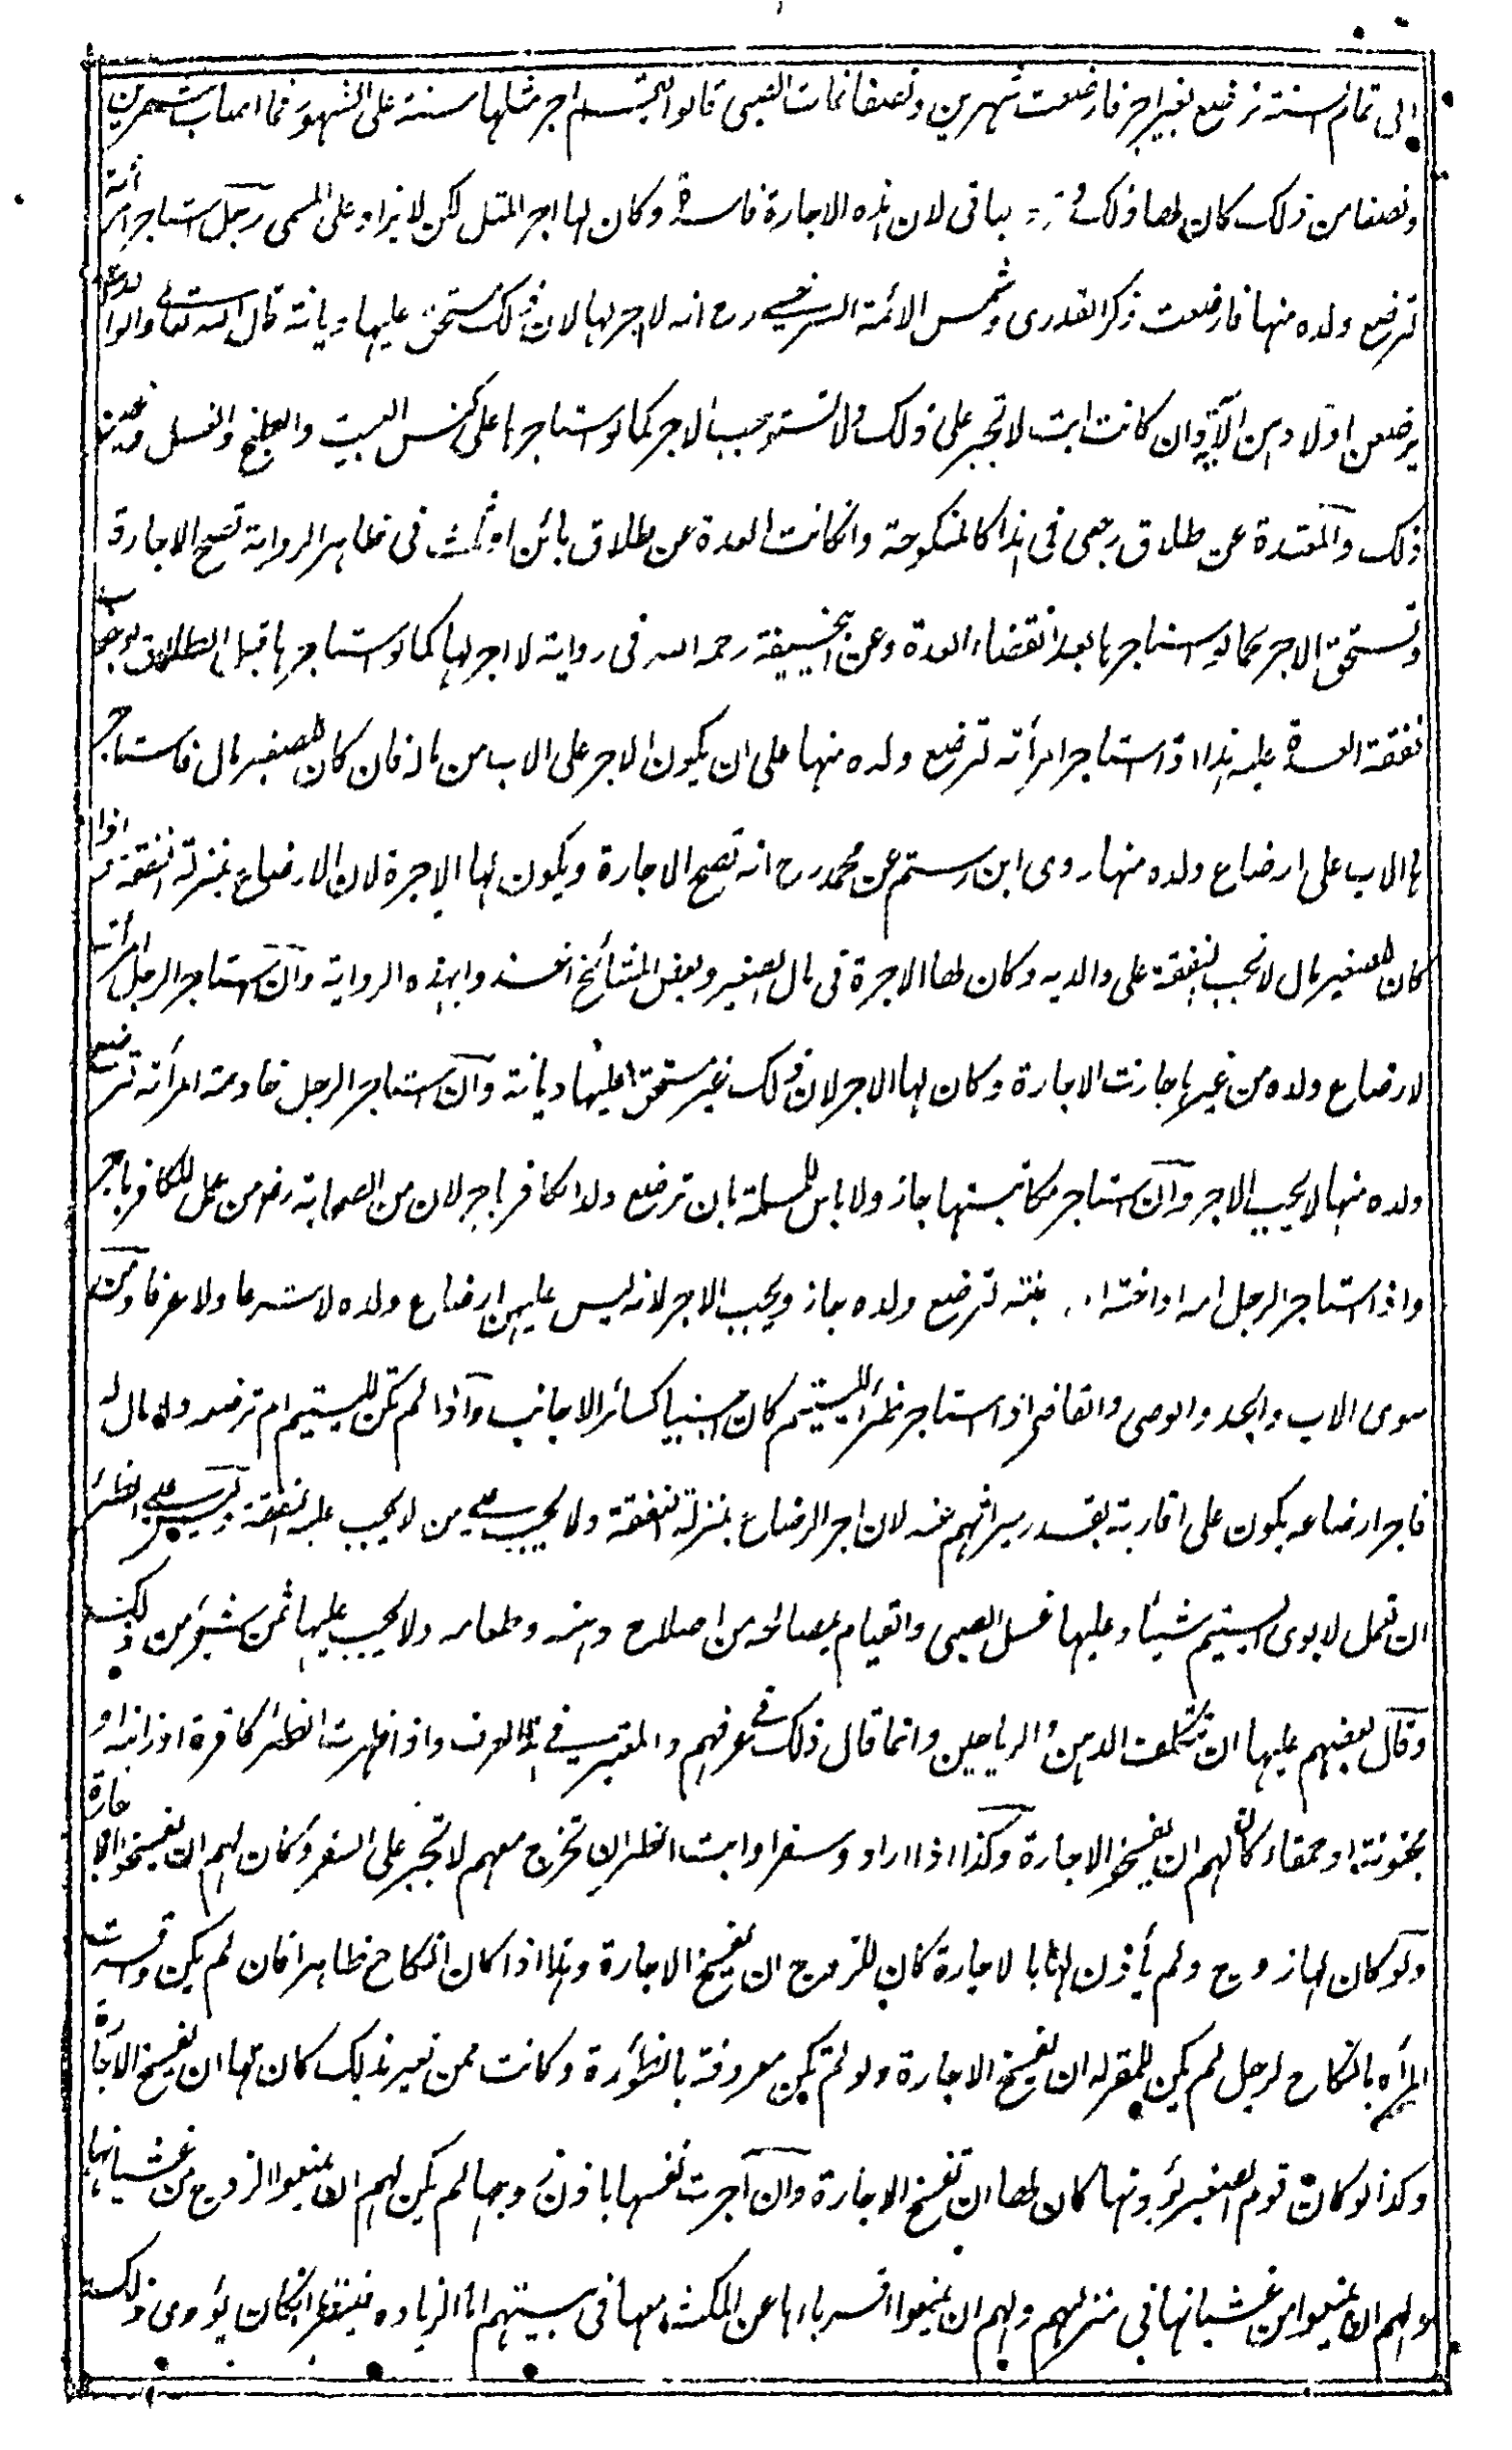 الى تمام السنة ترضع بغير اجر فارضعت شهرين ونصفا فمات الصبى قالوا يقسم اجر مثلها سنة على الشهور فما اصاب شهرين
ونصفا من ذلك كان لها ذلك باقى لان هذه الاجارة فاسدة وكان لها اجر المثل لكن لا يزاد على المسمى رجل استاجر امرأته
ترضع ولده منها فارضعت ذكر القدورى وشمس الائمة السرخسى رح انه لا اجر لها لان ذلك مستحق عليها ديانة قال الله تعالى والوالدات
يرضعن اولادهن الآية وان كانت ابت لا تجبر على ذلك ولا تستوجب الاجر كما لو استاجرها على كنس البيت والطبخ والغسل
ذلك والمعتدة عن طلاق رجعى فى هذا كالمنكوحة وانكانت العدة عن طلاق بائن او ثلث فى ظاهر الرواية تصح الاجارة
وتستحق الاجر كما لو استاجرها بعد انقضاء العدة وعن ابيحنيفة رحمه الله فى رواية لا اجر لها كما لو استاجرها قبل الطلاق لوجوب
نفقة العدة عليه هذا اذا استاجر امرأته ترضع ولده منها على ان يكون الاجر على الاب من ماله فان كان للصغير مال فاستاجر
ها الاب على ارضاع ولده منها روى ابن رستم عن محمد رح انه تصح الاجارة ويكون لها الاجرة لان الارضاع بمنزلة النفقة اذا
كان للصغير مال لا تجب النفقة على والديه وكان لها الاجرة فى مال الصغير وبعض المشائخ اخذوا بهذه الرواية وان استاجر الرجل امرأته
لارضاع ولده من غيرها جازت الاجارة وكان لها الاجر لان ذلك غير مستحق عليها ديانة وان استاجر الرجل خادمة امرأته ترضع
ولده منها لا يجب الاجر وان استاجر مكاتبتها جاز ولا باس للمسلمة بان ترضع ولد الكافر باجر لان من الصحابة رض من عمل للكافر باجر
واذا استاجر الرجل امه او اخته او بنته ترضع ولده جاز ويجب الاجر لانه ليس عليهن ارضاع ولده لا شرعا ولا عرفا ومن
سوى الاب والجد والوصى والقاضى اذا استاجر ظئرا لليتيم كان اجنبيا كسائر الاجانب واذا لم تكن لليتيم ام ترضعه ولا مال له
فاجر ارضاعه يكون على اقاربه بقدر ميراثهم منه لان اجر الرضاع بمنزلة النفقة ولا يجب على من لا يجب عليه النفقة وليس على الظئر
ان تعمل لابوى اليتيم شيئا وعليها غسل الصبى والقيام بمصالحه من اصلاح دهنه وطعامه ولا يجب عليها ثمن شئ من ذلك
وقال بعضهم عليها ان تتكلف الدهن والرياحين وانما قال ذلك فى عرفهم والمعتبر فى هذا العرف واذا ظهرت الظئر كافرة او زانية او
مجنونة او حمقاء كان لهم ان يفسخوا الاجارة وكذا اذا ارادوا سفرا وابت الظئر ان تخرج معهم لا تجبر على السفر وكان لهم ان يفسخوا الاجارة
ولو كان لها زوج ولم يأذن لها بالاجارة كان للزوج ان يفسخ الاجارة وهذا اذا كان النكاح ظاهرا فان لم يكن واقرت
المرأة بالنكاح لرجل لم يكن للمقر له ان يفسخ الاجارة ولو لم تكن معروفة بالظؤرة وكانت ممن تعير بذلك كان لها ان تفسخ الاجارة
وكذا لو كان قوم الصغير يؤذونها كان لها ان تفسخ الاجارة وان آجرت نفسها باذن زوجها لم يكن لهم ان يمنعوا الزوج من غشيانها
ولهم ان يمنعوا من غشيانها فى منزلهم ولهم ان يمنعوا اقرباءها عن المكث معها فى بيتهم اما الزيارة فينظر انكان يؤدى ذلك